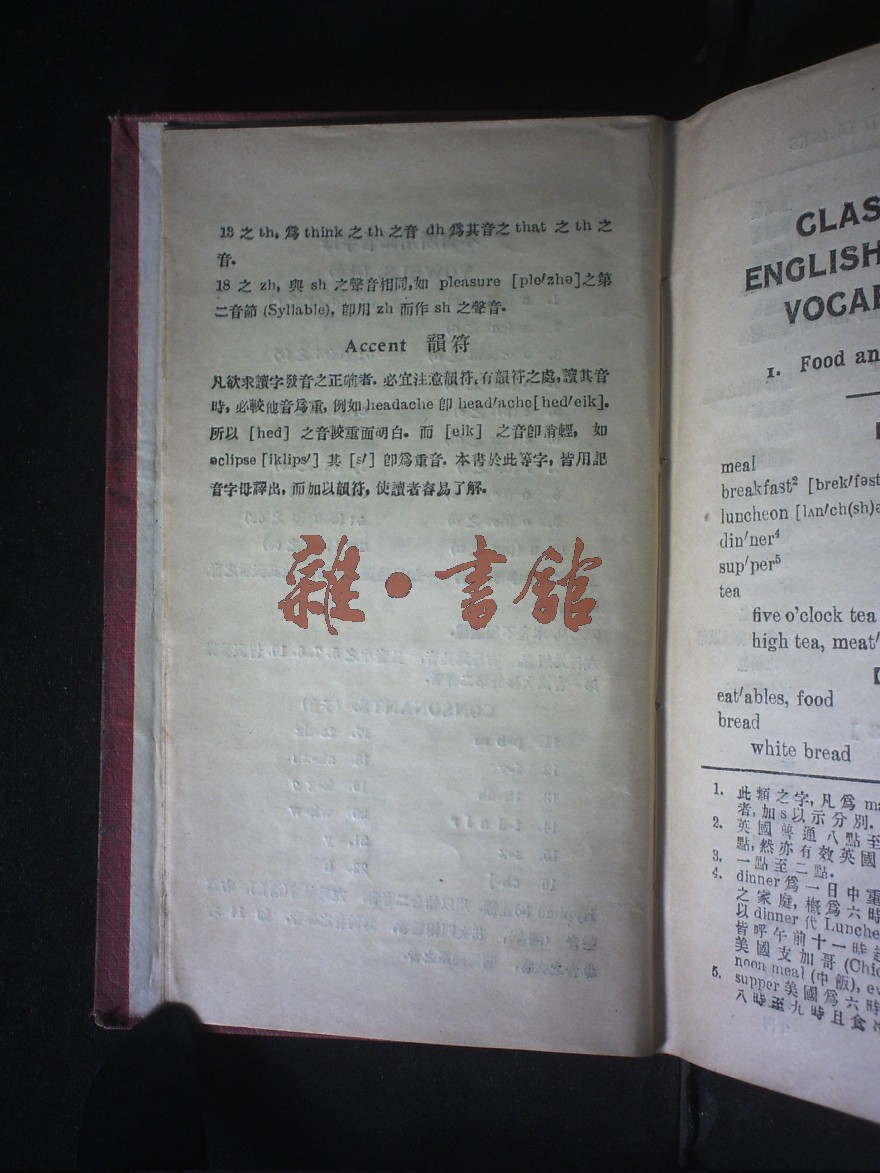 13 之 th, 爲 think 之 th 之音 dh 爲其音之 that 之 th 之
音.
18 之 zh, 與 sh 之聲音相同,如 pleasure [ple′zhə]之第
二音節 (Syllable), 卽用 zh 而作 sh 之聲音.
Accent 韻符
凡欲求讀字發音之正確者. 必宜注意韻符,有韻符之處,讀其音
時, 必較他音爲重, 例如 headache 卽 head′ache[hed′eik].
所以 [hed] 之音較重而明白. 而 [eik] 之音卽稍輕, 如
eclipse [iklips′] 其 [s′] 卽爲重音. 本書於此等字, 皆用記
音字母釋出, 而加以韻符, 使讀者容易了解.
雜·書館
CLAS
ENGLISH
VOCAB
1. Food an
meal
breakfast² [brek′fəst
luncheon [lʌn′ch(sh)ə
din′ner⁴
sup′per⁵
tea
five o'clock tea
high tea, meat′
eat′ables, food
bread
white bread
1. 此類之字, 凡爲 ma
者, 加 s 以示分別.
2. 英國普通八點至
點, 然亦有效英國
3. 一點至二點.
4. dinner 爲一日中重
之家庭, 概爲六時
以 dinner 代 Lunche
皆呼午前十一時起
美國支加哥 (Chic
noon meal (中飯), ev
5. supper 美國爲六時
八時至九時且食